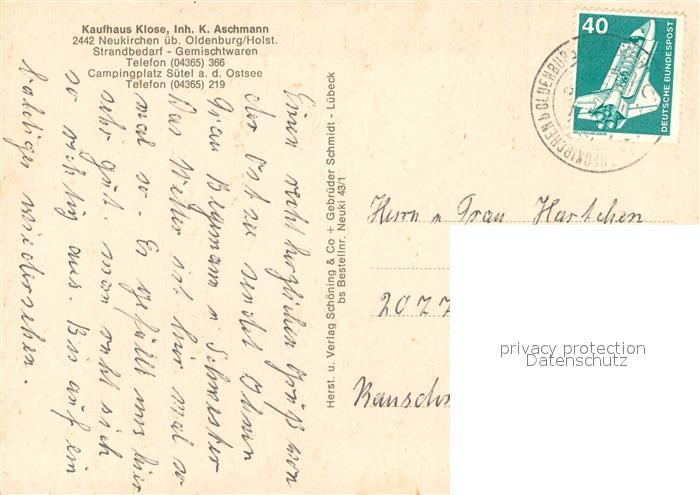 Kaufhaus Klose, Inh. K. Aschmann
2442 Neukirchen üb. Oldenburg/Holst.
Strandbedarf - Gemischtwaren
Telefon (04365) 366
Campingplatz Sütel a. d. Ostsee
Telefon (04365) 219
Einen recht herzlichen Gruß von
der Ostsee sendet Ihnen
Frau Bergmann u Schwester
Das Wetter ist hier mal so
mal so. Es gefällt uns hier
sehr gut. man ruht sich
so richtig aus. Bis auf ein
baldiges wiedersehen.
Herst. u. Verlag Schöning & Co + Gebrüder Schmidt - Lübeck
bs Bestellnr. Neuki 43/1
40
DEUTSCHE BUNDESPOST
WELTRAUMLABOR
NEUKIRCHEN b OLDENBURG
Herrn u Frau Hartchen
2077
privacy protection
Datenschutz